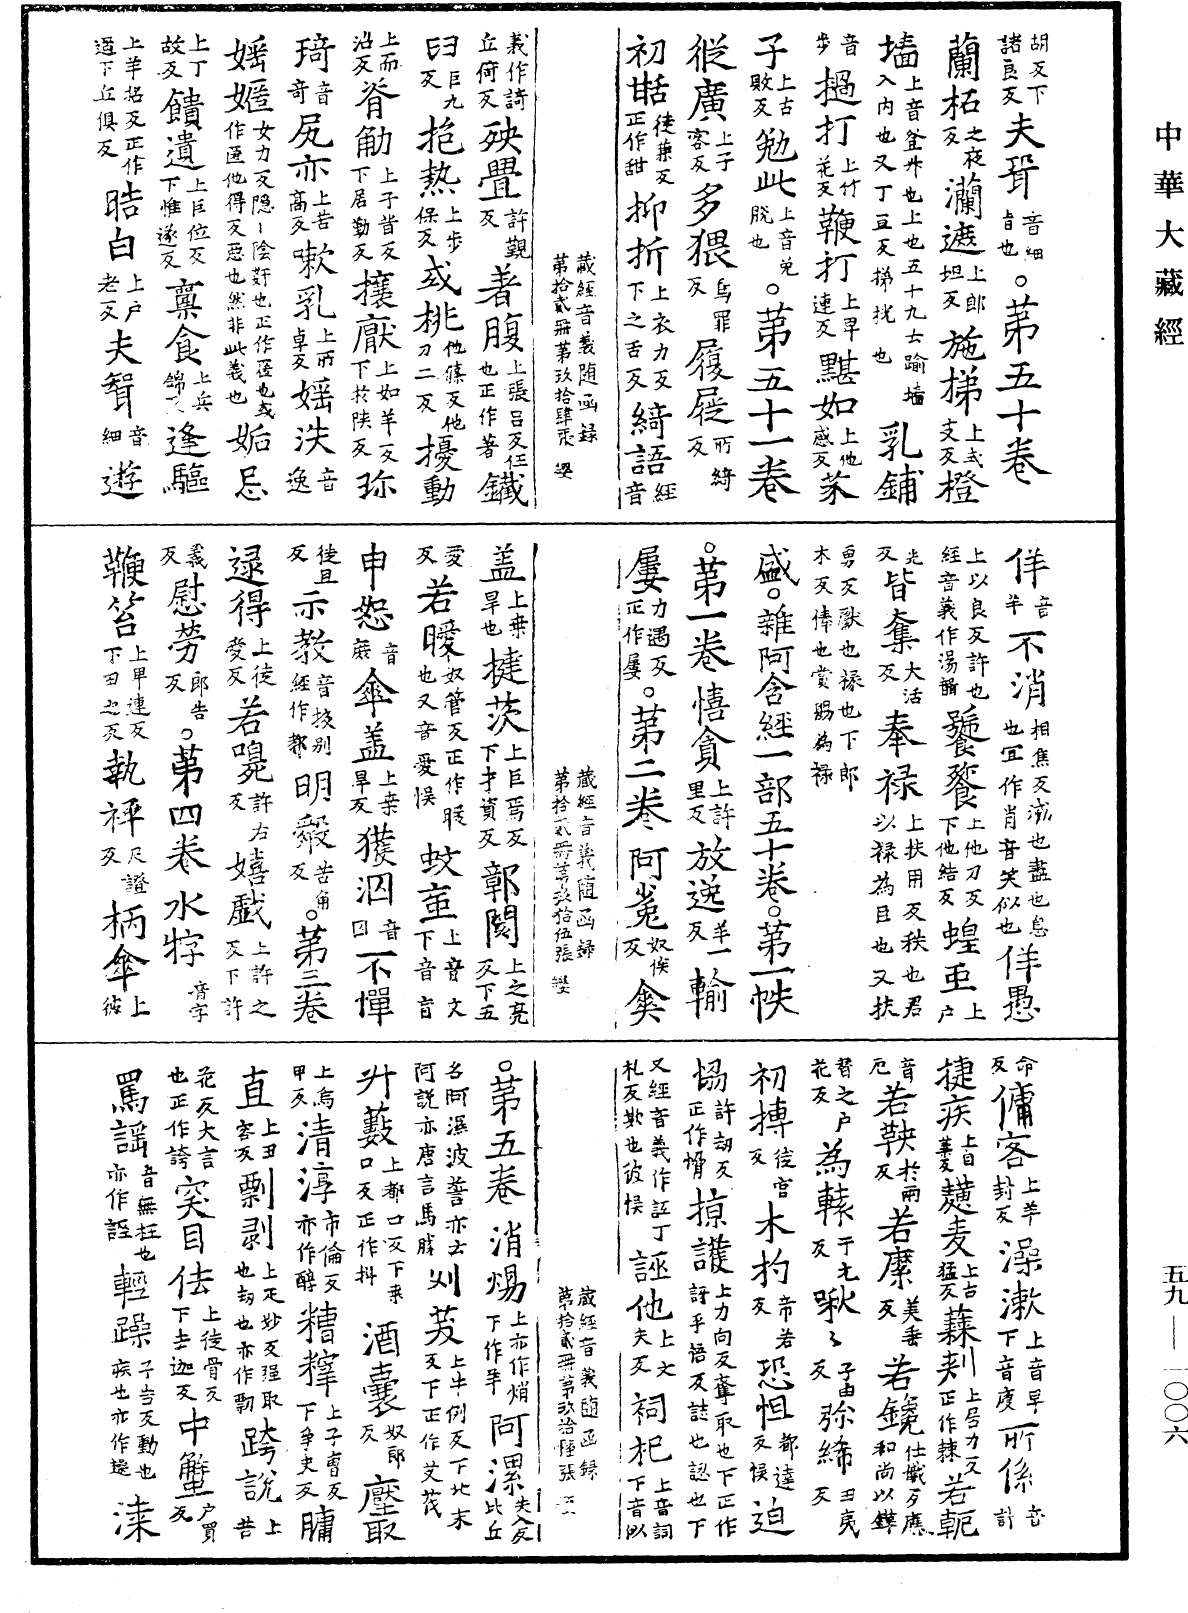 中華大藏經
五九—一〇〇六
胡反下諸良反夫聟音細正也。第五十卷
蘭柘之夜反瀾遮上郎坦反施梯上式支反橙
墙上音釜升也上也五十九云踰墙入内也又丁豆反㨆挄也乳鋪
音步撾打上竹花反鞭打上卑連反黮如上他感反菉
子上古敗反勉此上音免脫也。第五十一卷
從廣上子容反多猥烏罪反履屣所綺反
初甛徒兼反正作甜抑折上衣力反下之舌反綺語音經
藏經音義随函録第拾貳冊第玖拾肆張
義作詩丘倚反殃舋許觐反著腹上張吕反伍也正作著鑯
臼巨九反抱熱上步保反或桃他篠反他刀二反擾動
上而沼反脊觔上子昔反下居勤反攘厭上如羊反下於陕反珎
琦音奇尻亦上苦高反嗽乳上所卓反婬泆音逸
婬嬺女力反隐丨陰奸也正作匿也或作匧他得反惡也然非此義也妬忌
上丁故反饋遺上巨位反下惟遂反禀食上兵錦反逢驅
上羊招反正作遥下丘俱反晧白上户老反夫聟音細遊
佯音羊不消相焦反滅也盡也息也冝作肖音笑似也佯愚
上以良反許也經音義作湯餳饕餮上他刀反下他結反蝗䖝上户
光反皆奪大活反奉禄上扶用反秩也君以禄為目也又扶
勇反獻也禄也下郎木反俸也賞賜為禄
盛。雜阿含經一部五十卷。第一帙
。第一卷憘貪上許里反放逸羊一反輸
屢力遇反正作屢。第二卷阿㝹奴侯反㑹
藏經音義随函録第拾貳冊第玖拾伍張
盖上桒旱也揵茨上巨焉反下才資反鄣閡上之亮反下五
愛反若㬉奴管反正作暖也又音愛悮蚊䖟上音文下音盲
申恕音庶傘盖上桒旱反獲泅音囚不憚
徒旦反示教音挍别經作郝明㲉苦角反。第三卷
逯得上徒愛反若嗅許右反嬉戲上許之反下許
義反慰勞郎告反。第四卷水牸音字
鞭笞上卑連反下丑之反執秤尺證反柄傘上彼
命反傭客上羊封反澡漱上音早下音瘦所係音計
捷疾上自葉反䵃麦上古猛反蕀刺上居力反正作棘若軛
音厄若鞅於兩反若縻美垂反若鑱仕懴反應和尚以鏵
替之户花反為轅于元反啾〻子由反弥絺丑夷反
初摶徒官反木杓市若反恐怛都達反悮迫
協許刧反正作愶掠護上力向反奪取也下正作謼乎悟反誌也認也下
又經音義作証丁礼反欺也彼悮誣他上文夫反祠杞上音詞下音以
藏經音義随函録第拾貳冊第玖拾陸張
。第五卷消煬上亦作焇下作羊阿漯失入反比丘
名阿濕波誓亦云阿說亦唐言馬勝刈芟上牛例反下北末反下正作艾茷
㪷藪上都口反下桒口反正作抖酒囊奴郎反壓取
上烏甲反清淳市倫反亦作醇糟䊀上子曹反下争史反牗
直上丑容反剽剥上疋妙反强取也刼也亦作㔄跨說上苦
花反大言也正作誇突目上徒骨反佉下去迦反中蟹户買反
罵謡音無枉也亦作誣輕躁子告反動也疾也亦作趮